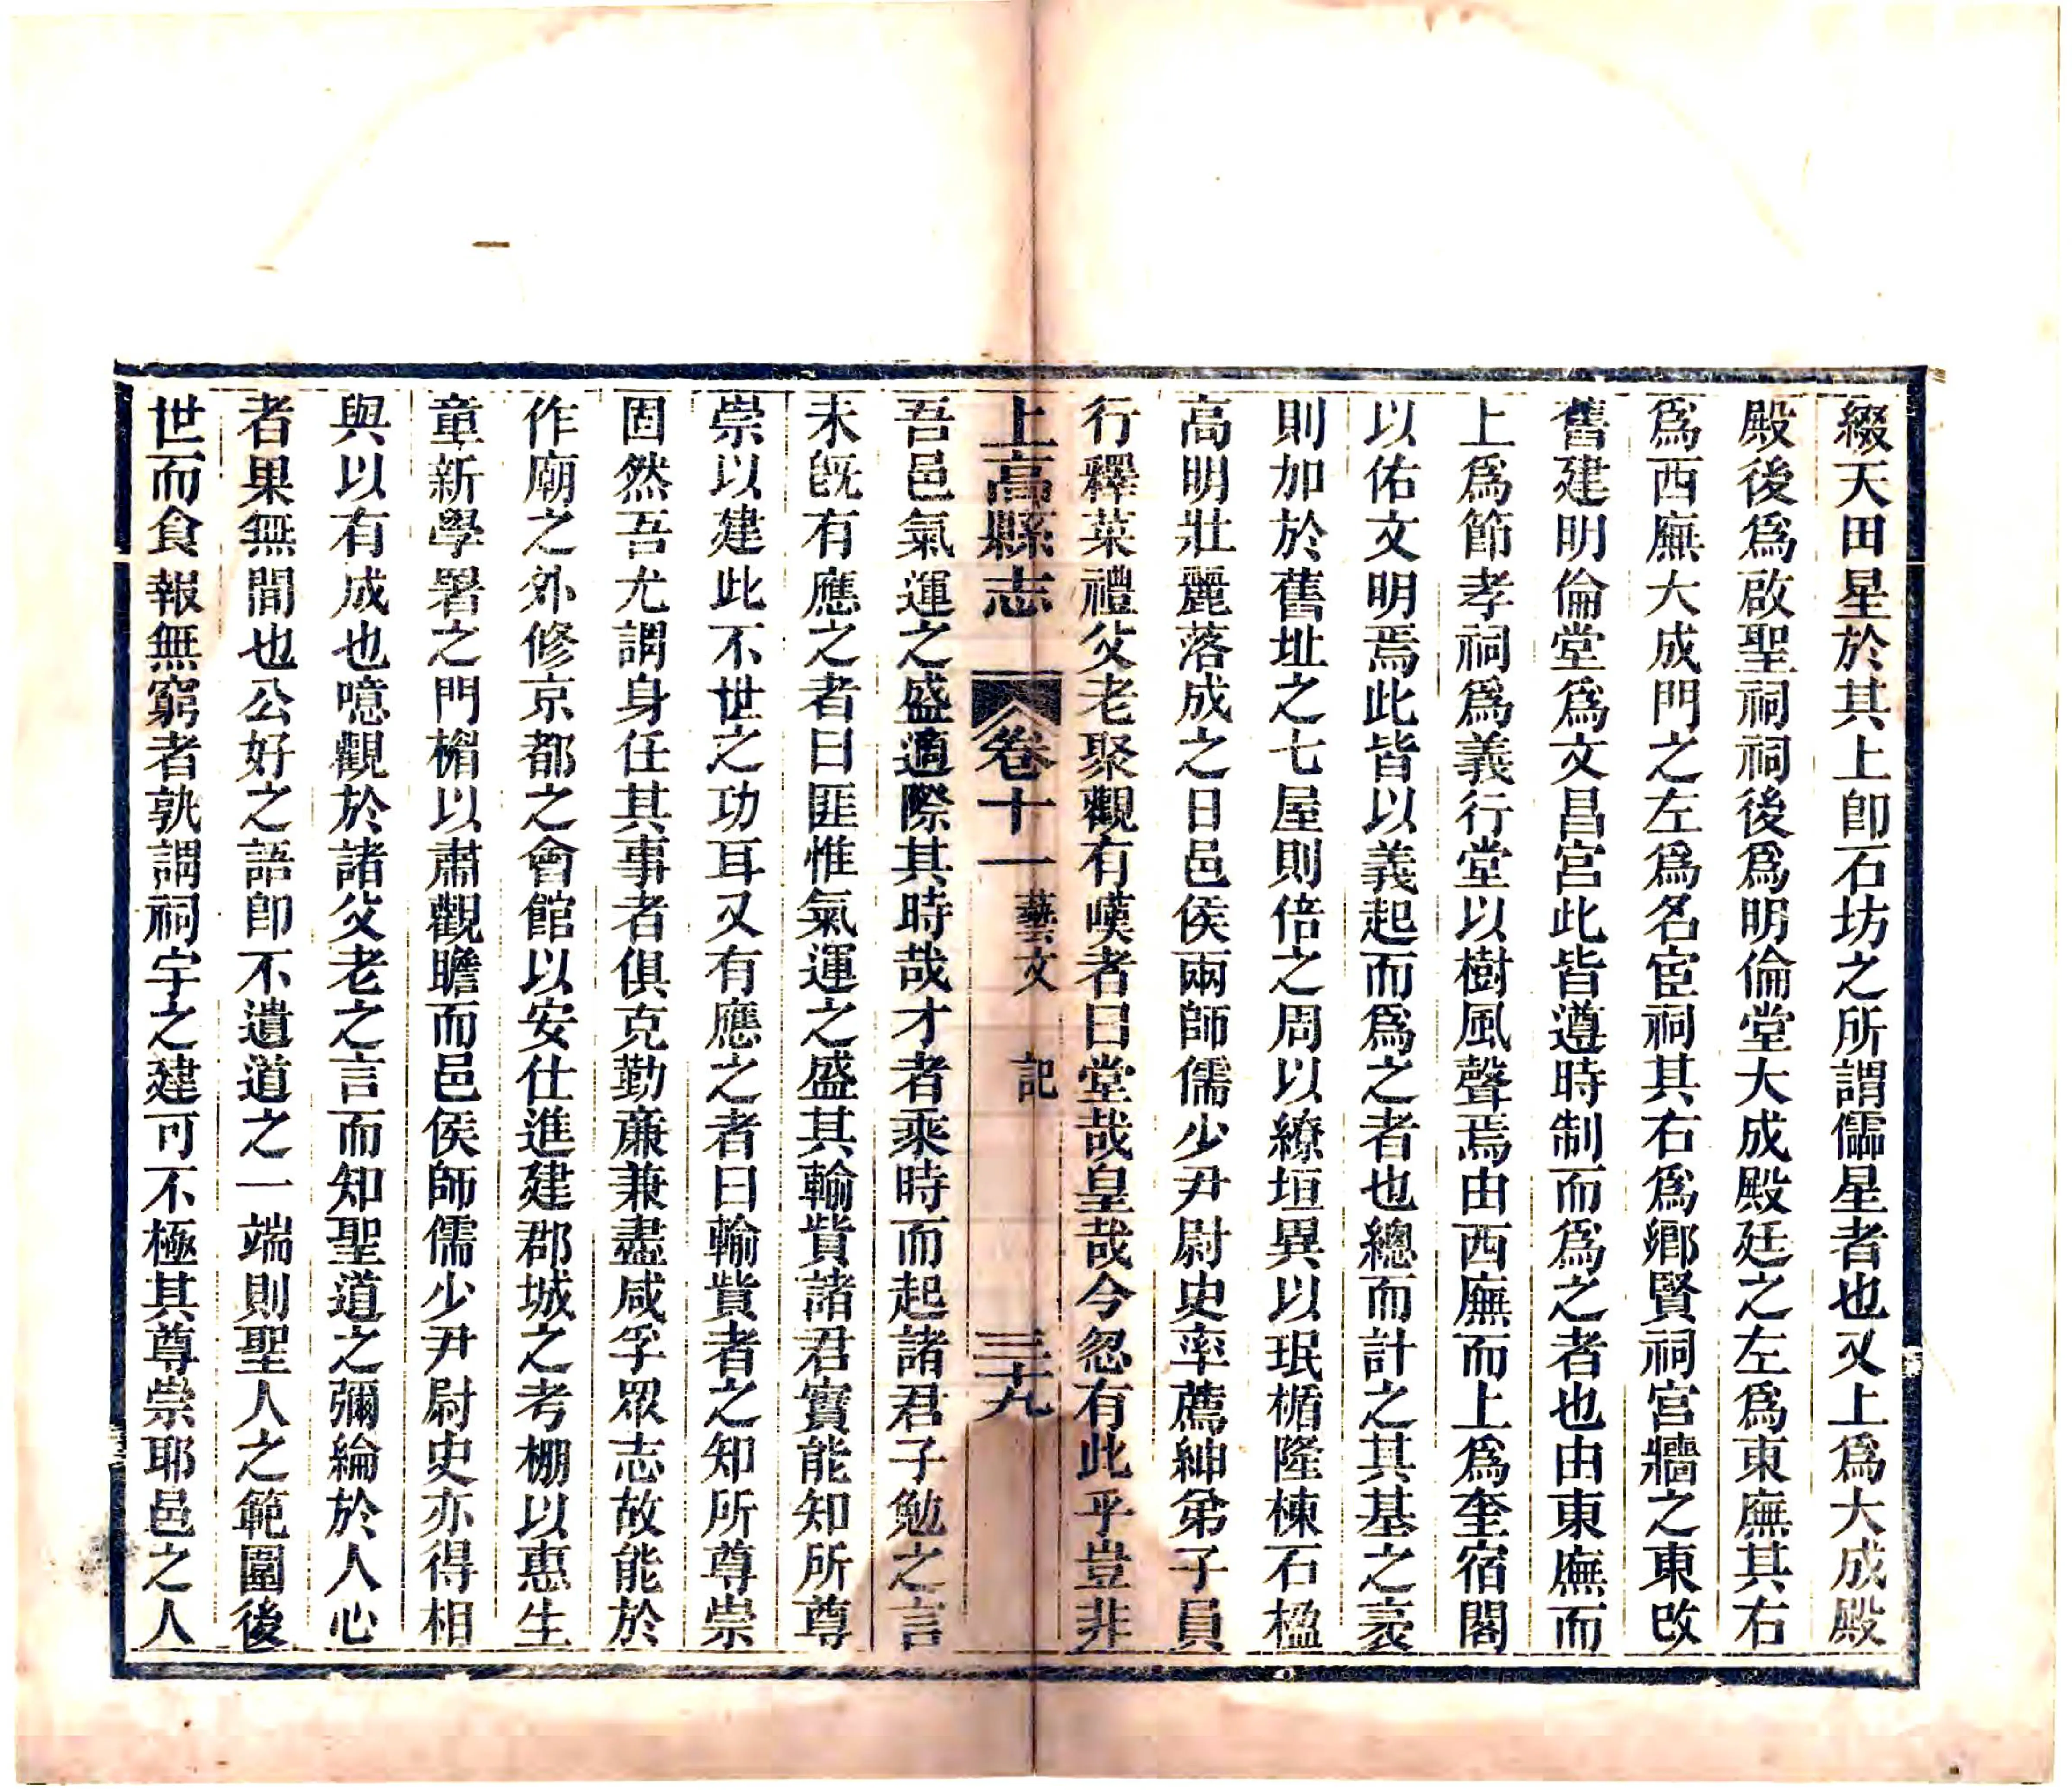 綴天田星於其上卽石坊之所謂儒星者也又上爲大成殿
殿後爲啟聖祠祠後爲明倫堂大成殿廷之左爲東廡其右
爲西廡大成門之左爲名宦祠其右爲鄕賢祠宮牆之東改
舊建明倫堂爲文昌宮此皆遵時制而爲之者也由東廡而
上爲節孝祠爲義行堂以樹風聲焉由西廡而上爲奎宿閣
以佑文明焉此皆以義起而爲之者也總而計之其基之袤
則加於舊址之七屋則倍之周以繚垣異以珉楯隆棟石楹
高明壯麗落成之日邑侯兩師儒少尹尉史率薦紳弟子員
行釋菜禮父老聚觀有嘆者曰堂哉皇哉今忽有此乎豈非
上高縣志 卷十一 藝文 記 三九
吾邑氣運之盛適際其時哉才者乘時而起諸君子勉之言
未旣有應之者曰匪惟氣運之盛其輸貲諸君實能知所尊
崇以建此不世之功耳又有應之者曰輸貲者之知所尊崇
固然吾尤謂身任其事者俱克勤廉兼盡咸孚眾志故能於
作廟之外修京都之會館以安仕進建郡城之考棚以惠生
童新學署之門楣以肅觀瞻而邑侯師儒少尹尉史亦得相
與以有成也噫觀於諸父老之言而知聖道之彌綸於人心
者果無間也公好之語卽不遺道之一端則聖人之範圍後
世而食報無窮者孰謂祠宇之建可不極其尊崇耶邑之人